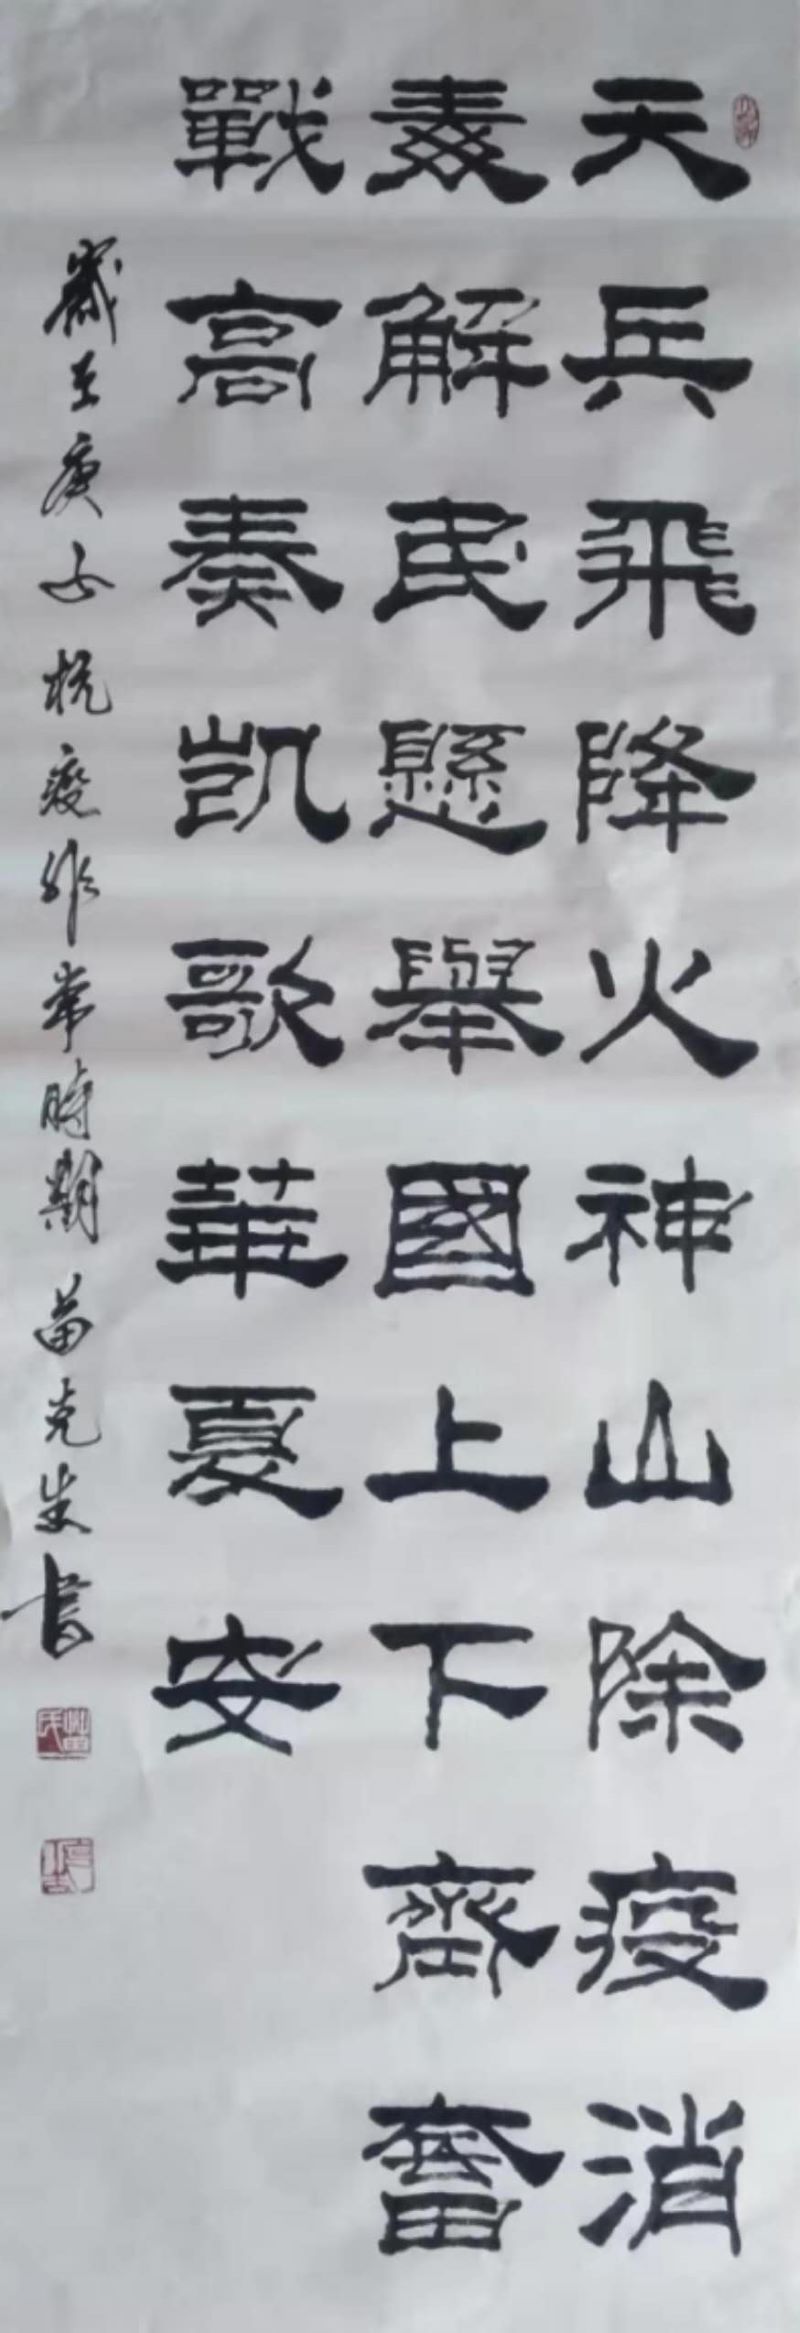 天兵飛降火神山除疫消
毒解民懸舉國上下齊奮
戰高奏凱歌華夏安
歲在庚子抗疫非常時期苗克生書